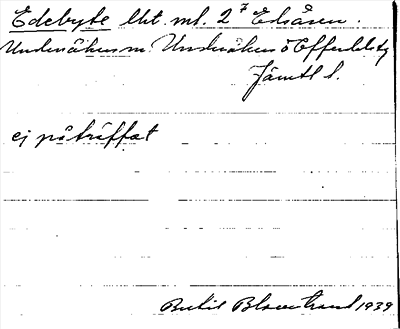 Edebyte lht. ml. 2 Elsåsen.
Undersåkers sn. Undersåkers o Offerdals tg
Jämtl l.
ej påträffat
Bertil Blomstrand 1939